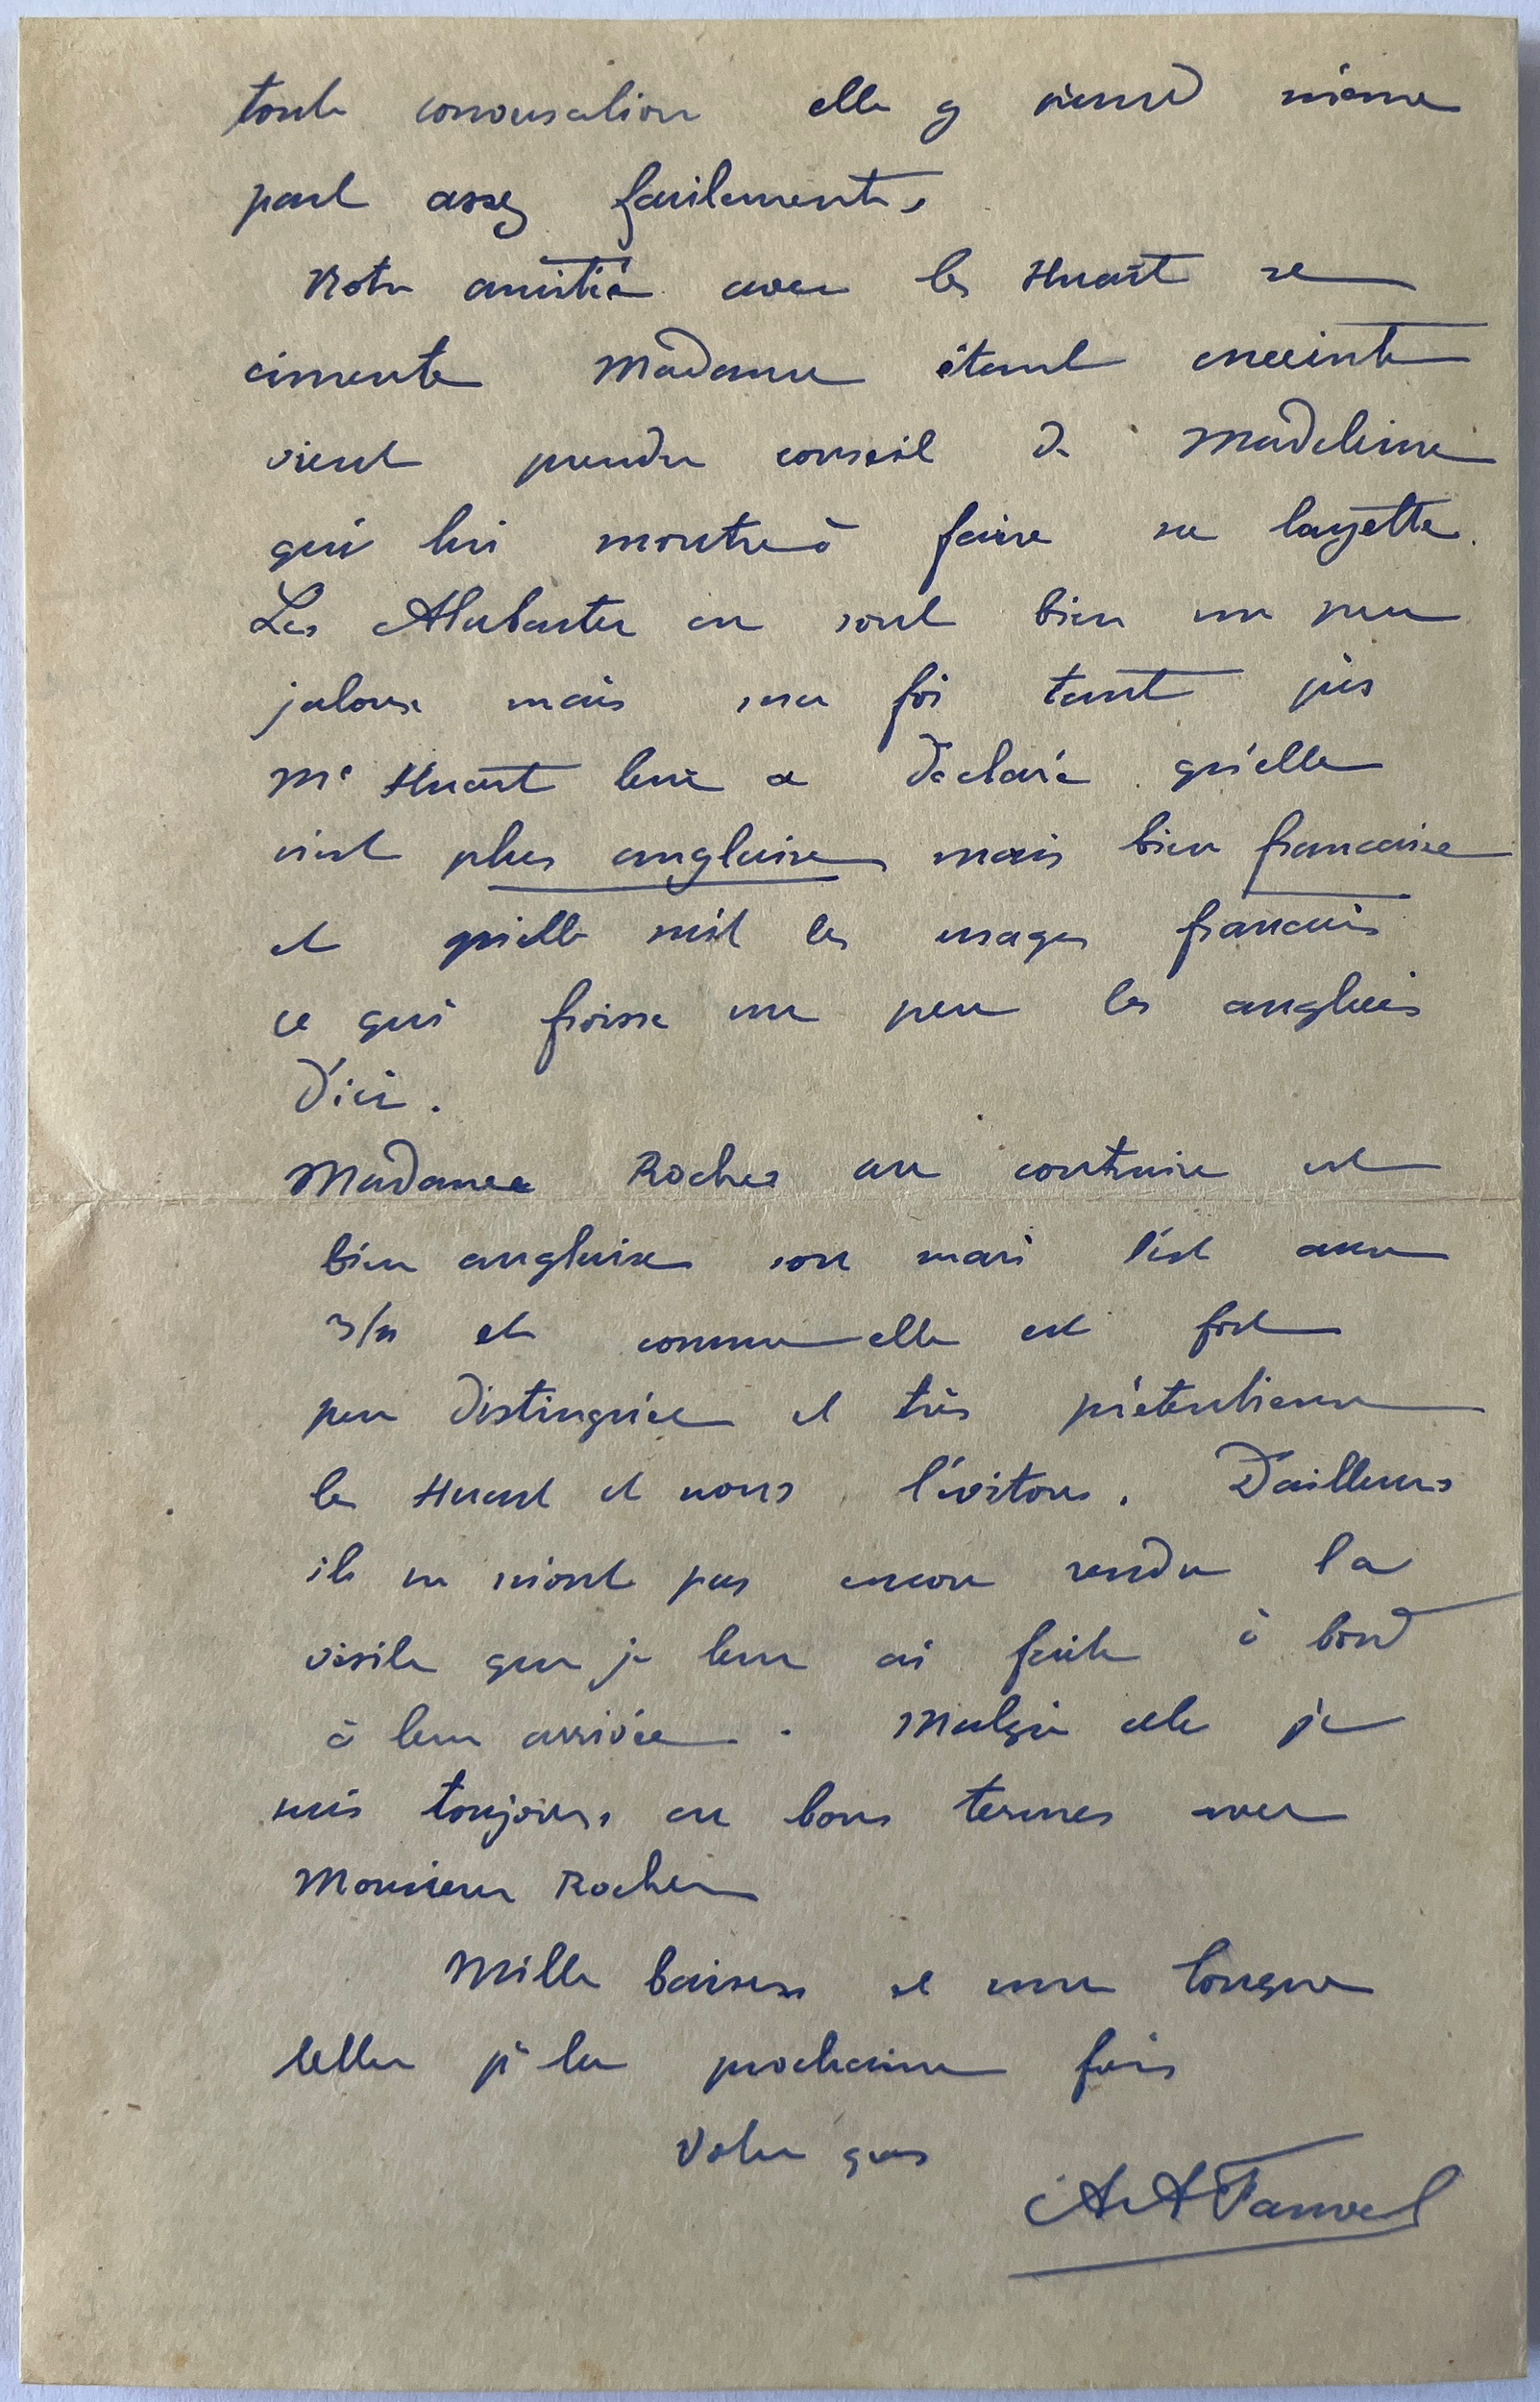 toute conversation elle y prend même
part assez facilement.
Notre amitié avec les Huart se
cimente Madame étant enceinte
vient prendre conseil de Madeleine
qui lui montre à faire sa layette.
Les Alabaster en sont bien un peu
jaloux mais ma foi tant pis
Me Huart leur a déclaré qu'elle
n'est plus anglaise mais bien francaise
et qu'elle suit les usages francais
ce qui froisse un peu les anglais
d'ici.
Madame Rocher au contraire est
bien anglaise son mari l'est aux
3/4 et comme elle est fort
peu distinguée et très prétentieuse
les Huart et nous l'évitons. D'ailleurs
ils ne m'ont pas encore rendu la
visite que je leur ai faite à bord
à leur arrivée. Malgré cela je
suis toujours en bons termes avec
Monsieur Rocher
Mille baisers et une longue
lettre à la prochaine fois
Votre gas